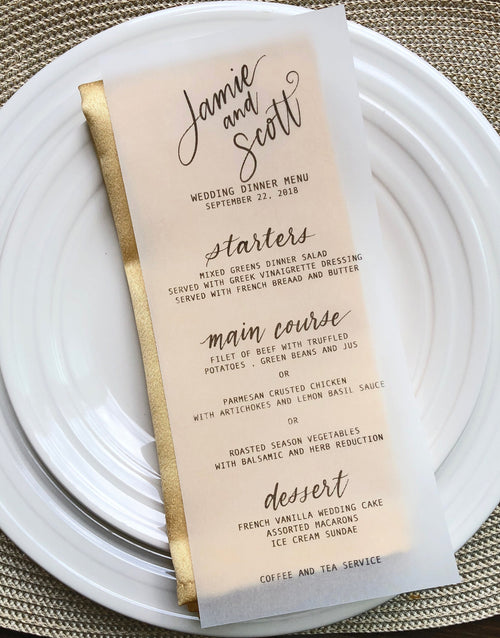 Jamie
and
Scott
WEDDING DINNER MENU
SEPTEMBER 22, 2018
starters
MIXED GREENS DINNER SALAD
SERVED WITH GREEK VINAIGRETTE DRESSING
SERVED WITH FRENCH BREAAD AND BUTTER
main course
FILET OF BEEF WITH TRUFFLED
POTATOES , GREEN BEANS AND JUS
OR
PARMESAN CRUSTED CHICKEN
WITH ARTICHOKES AND LEMON BASIL SAUCE
OR
ROASTED SEASON VEGETABLES
WITH BALSAMIC AND HERB REDUCTION
dessert
FRENCH VANILLA WEDDING CAKE
ASSORTED MACARONS
ICE CREAM SUNDAE
COFFEE AND TEA SERVICE